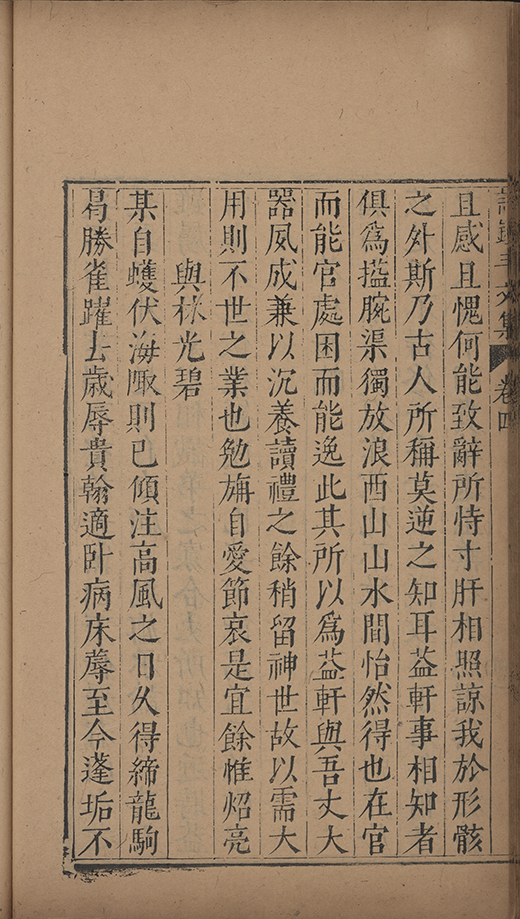 且感且愧何能致辭所恃寸肝相照諒我於形骸
之外斯乃古人所稱莫逆之知耳益軒事相知者
俱爲搤腕渠獨放浪西山山水間怡然得也在官
而能官處困而能逸此其所以爲益軒與吾丈大
器夙成兼以沉養讀禮之餘稍留神世故以需大
用則不世之業也勉旃自愛節哀是宜餘惟炤亮
與林光碧
某自蠖伏海陬則已傾注高風之日久得締龍駒
曷勝雀躍去歲辱貴翰適卧病床蓐至今蓬垢不
文集
卷四